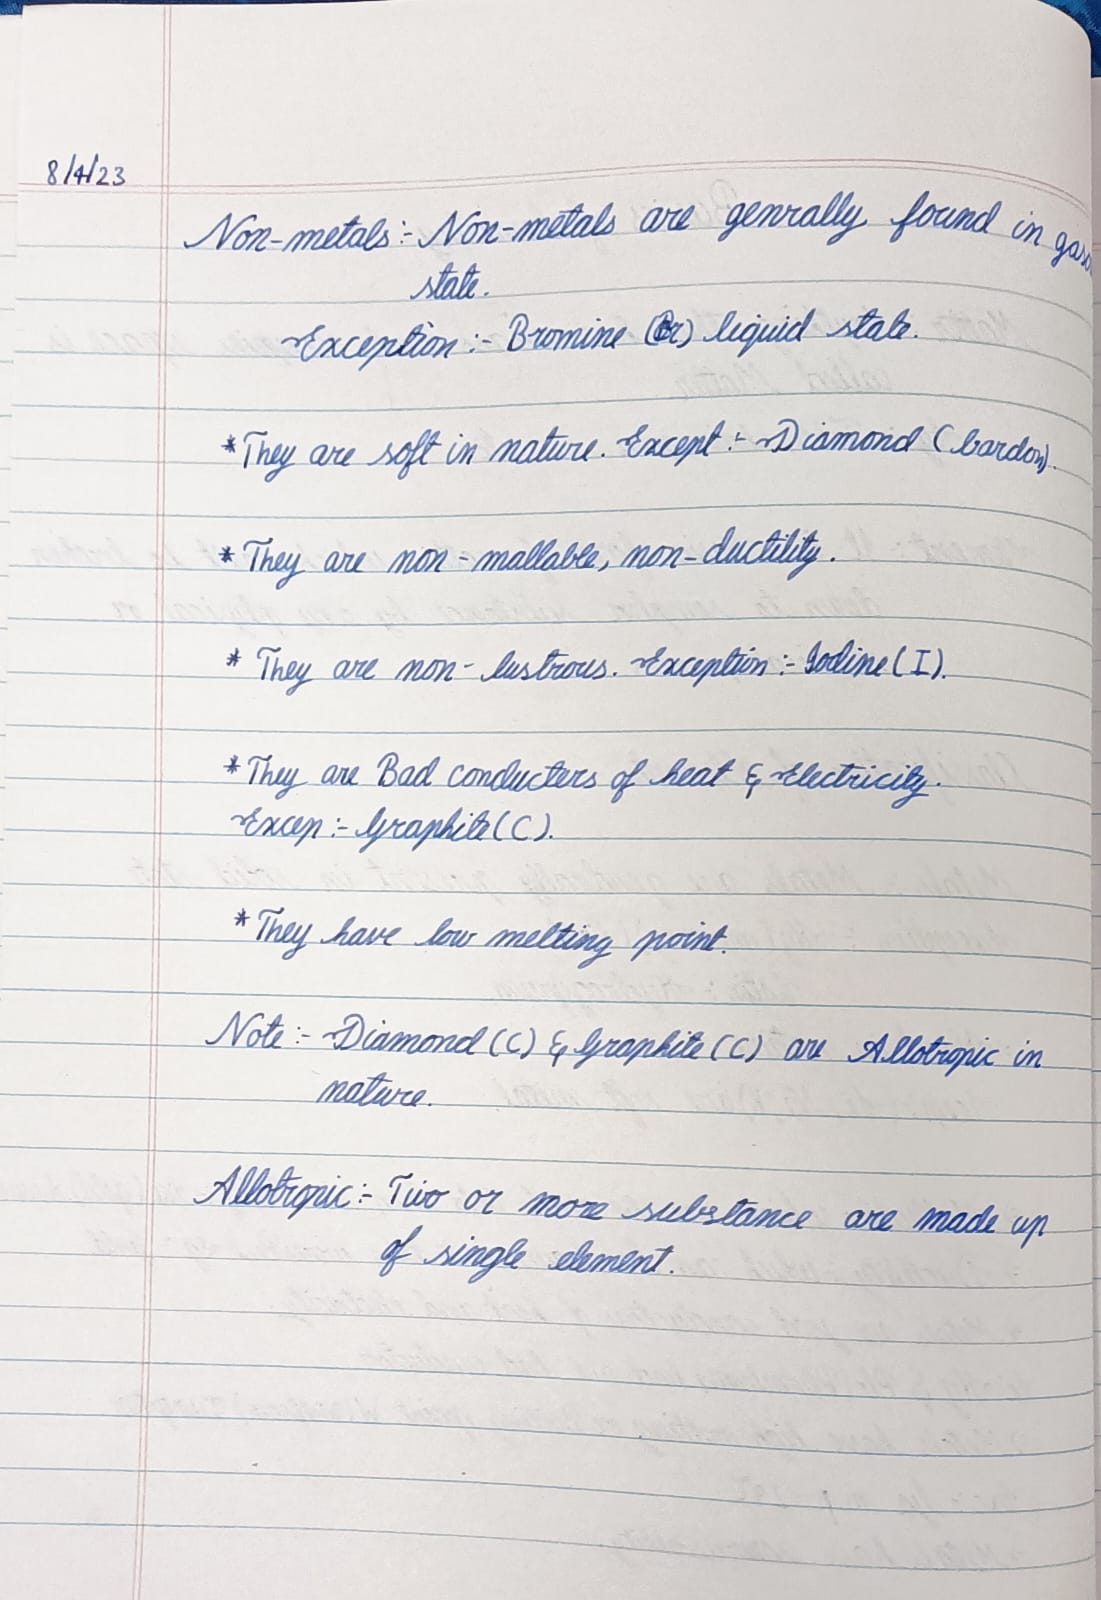 8/4/23
Non-metals :- Non-metals are genrally found in
state.
Exception :- Bromine (Br) liquid state.
* They are soft in nature. Except :- Diamond (Cardon).
* They are non-mallable, non-ductility.
* They are non-lustrous. Exception :- Iodine (I).
* They are Bad conducters of heat & Electricity.
Excep :- Graphite (C).
* They have low melting point.
Note :- Diamond (C) & Graphite (C) are Allotropic in
nature.
Allotropic :- Two or more substance are made up
of single element.